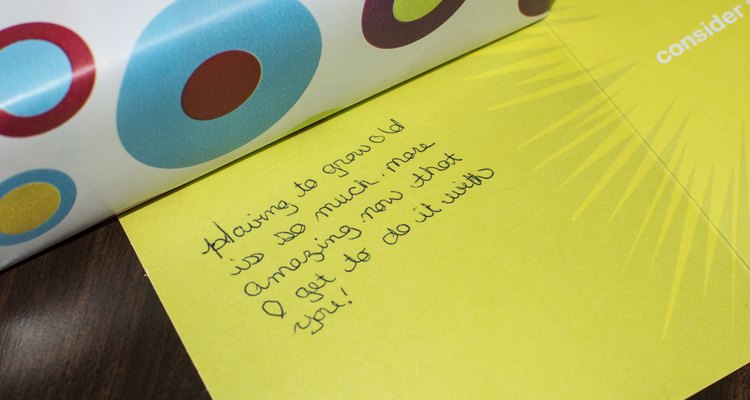 consider
Having to grow old
is so much more
amazing now that
I get to do it with
you!